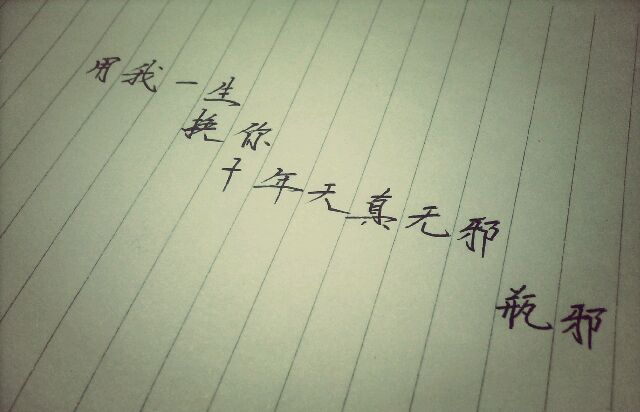 用我一生
换你
十年天真无邪
瓶邪